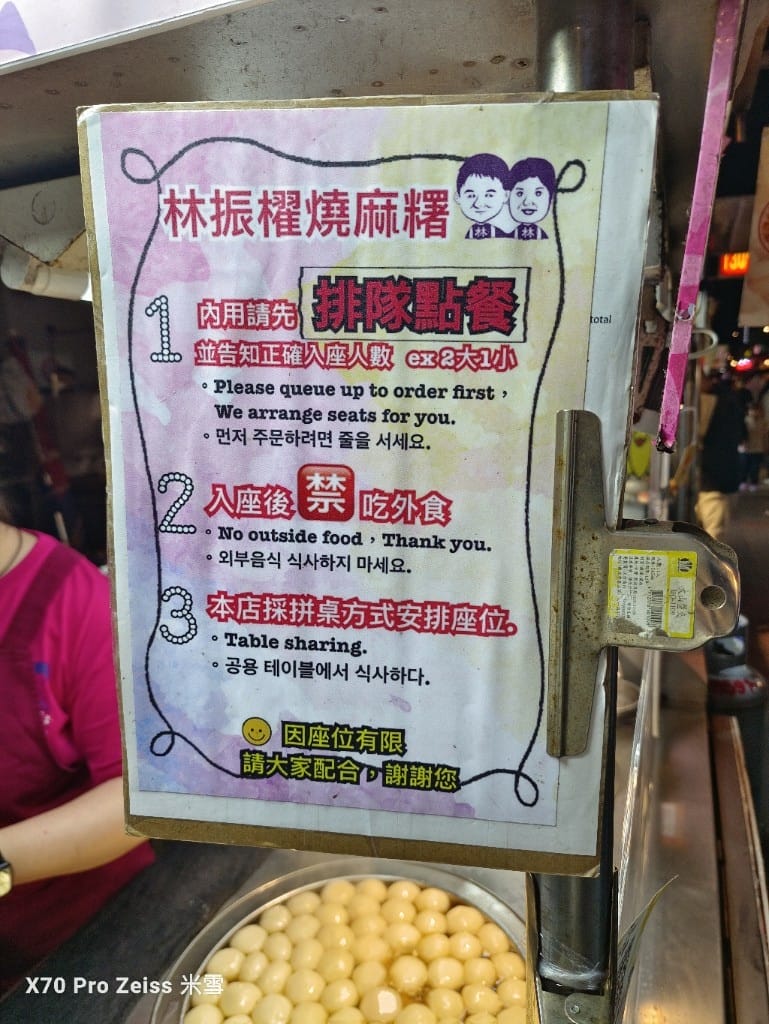 林振櫂燒麻糬
林 林
1 內用請先 排隊點餐
並告知正確入座人數 ex 2大1小
。Please queue up to order first，
We arrange seats for you.
。먼저 주문하려면 줄을 서세요.
2 入座後 禁 吃外食
。No outside food，Thank you.
。외부음식 식사하지 마세요.
3 本店採拼桌方式安排座位.
。Table sharing.
。공용 테이블에서 식사하다.
因座位有限
請大家配合，謝謝您
total
X70 Pro Zeiss 米雪